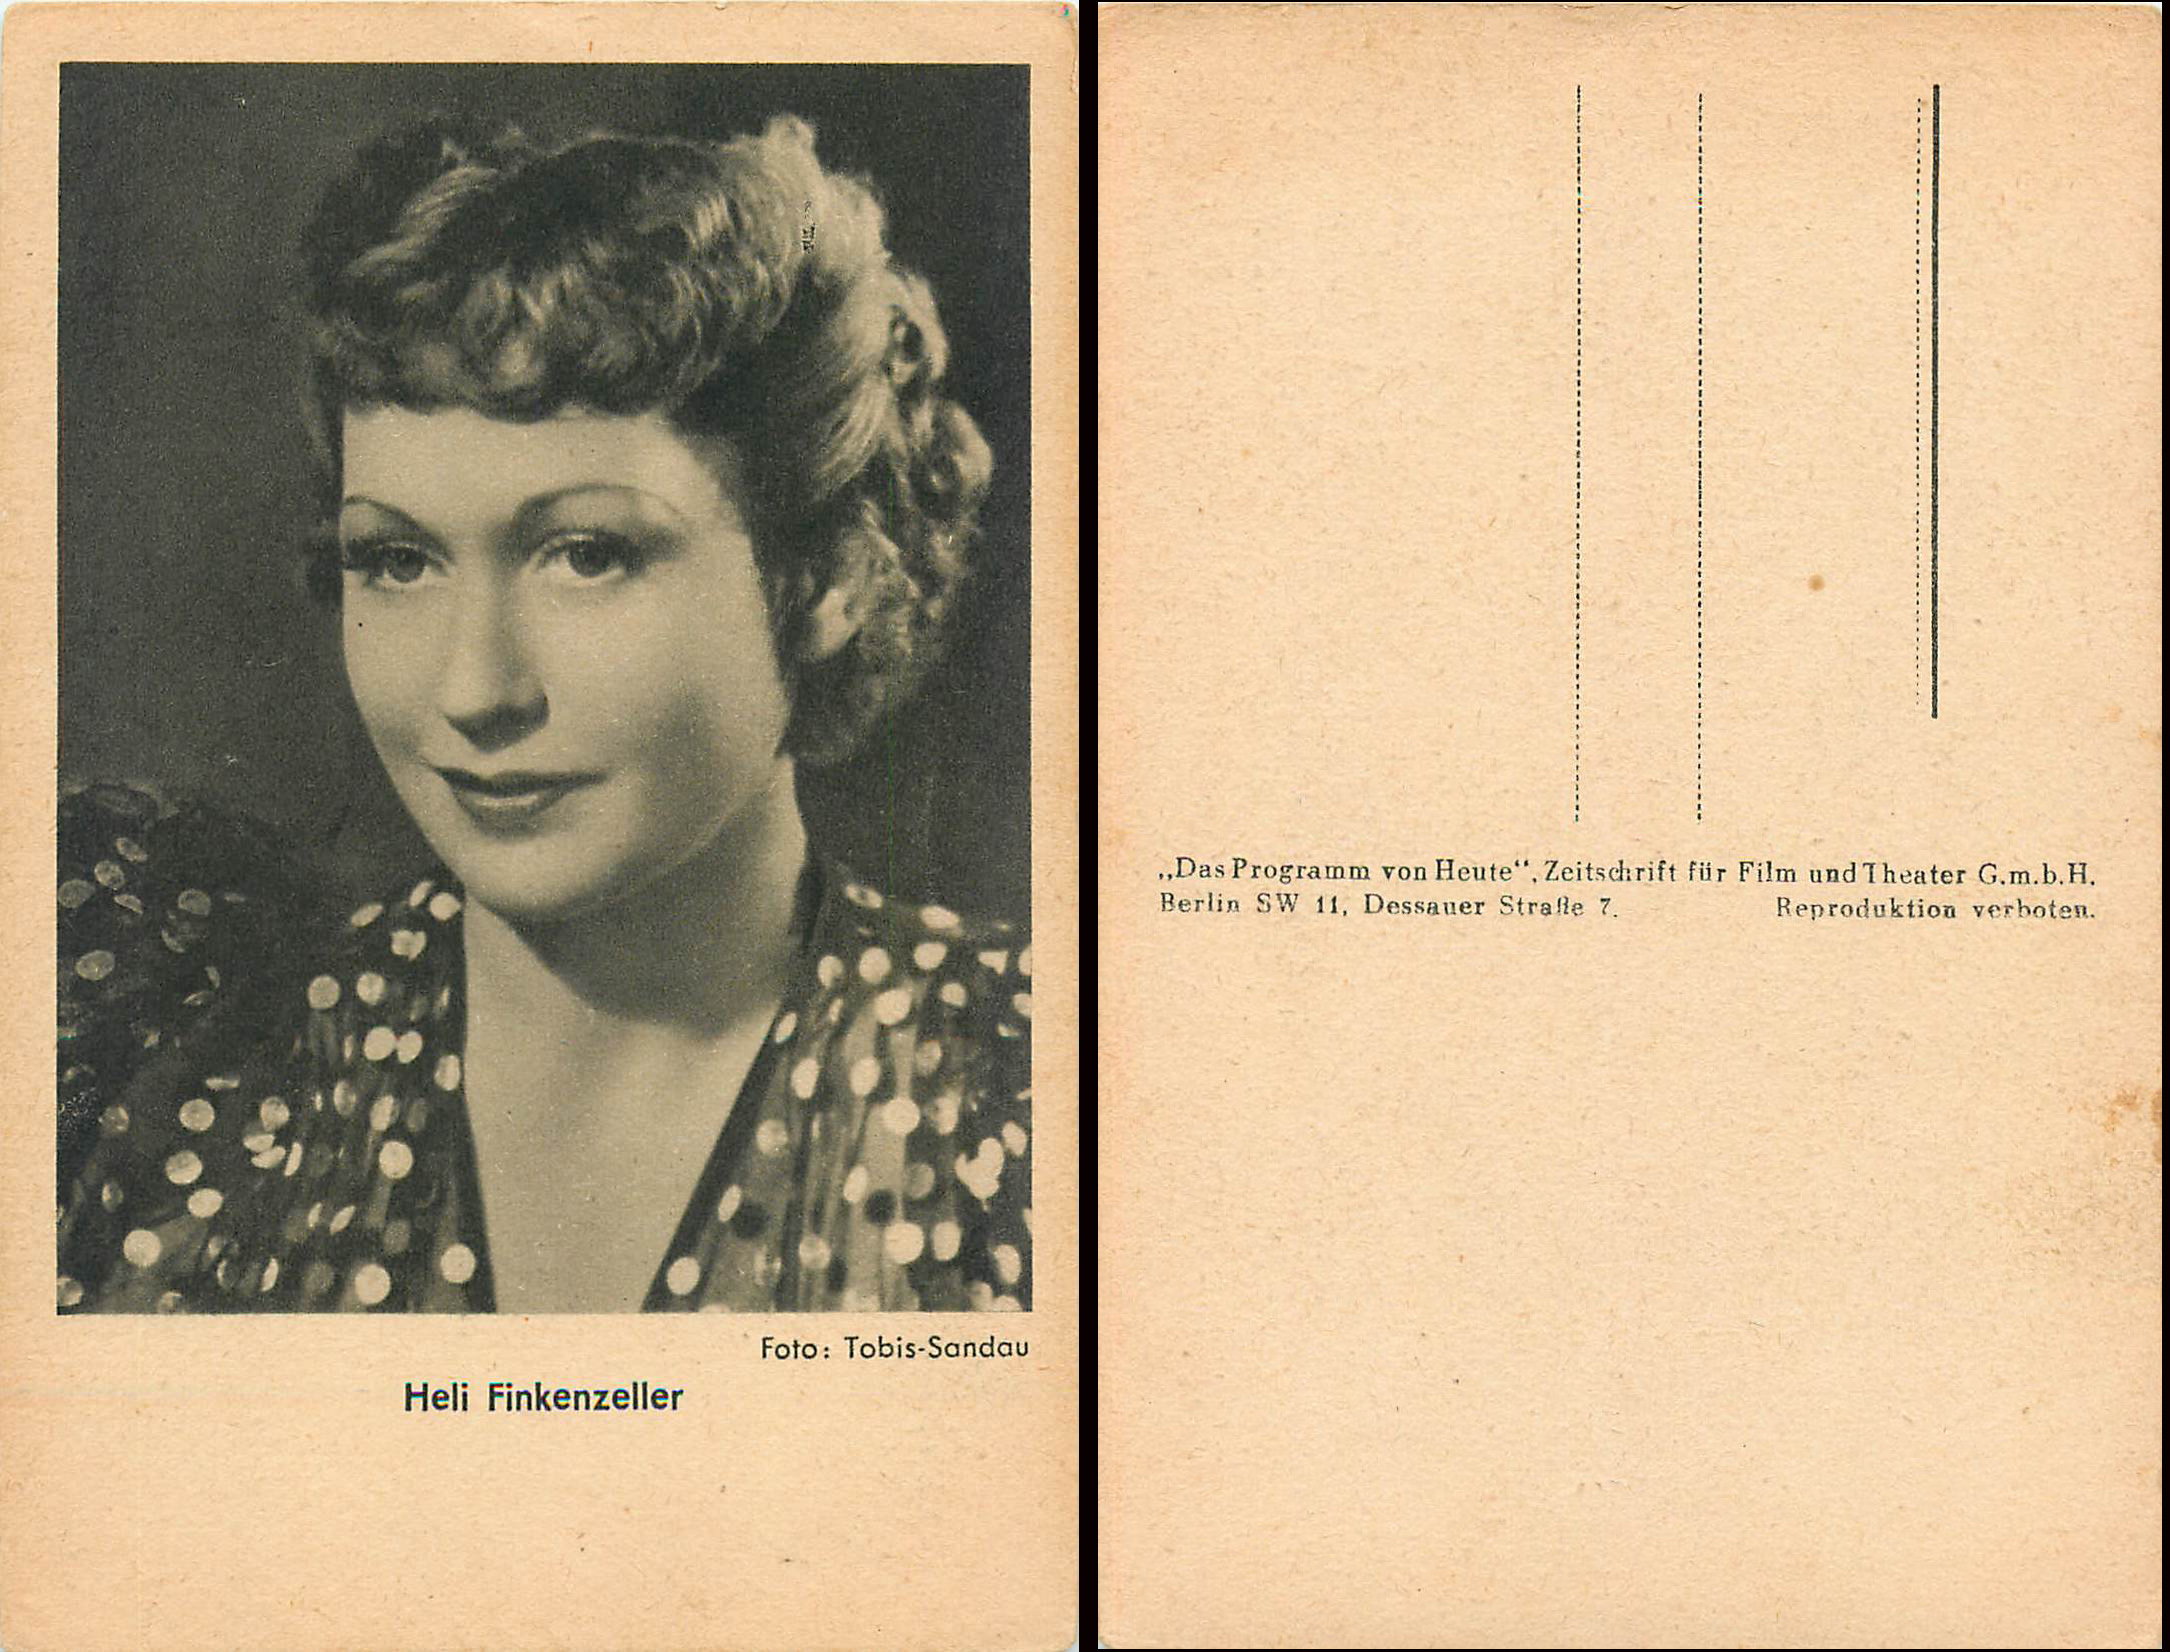 Foto: Tobis-Sandau
Heli Finkenzeller
„Das Programm von Heute“, Zeitschrift für Film und Theater G.m.b.H.
Berlin SW 11, Dessauer Straße 7. Reproduktion verboten.